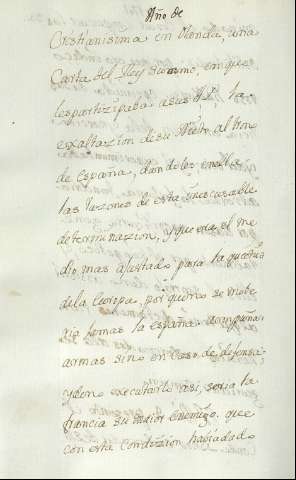 Año de
Cristianisima en Olanda, una
Carta del Rey su amo, en que
les partizipaba a sus A.P., la
exaltazion de su Nieto al trono
de España, dandoles en ella
las razones de esta inescusable
determinazion, y que era el me
dio mas ajustado para la quietud
de la Europa, por quanto no se mobe
ria jamas la españa a empuñar
armas sino en Caso de defensa
y de no executarlo asi, seria la
francia su maior enemigo, que
con esta Condizion habia dado